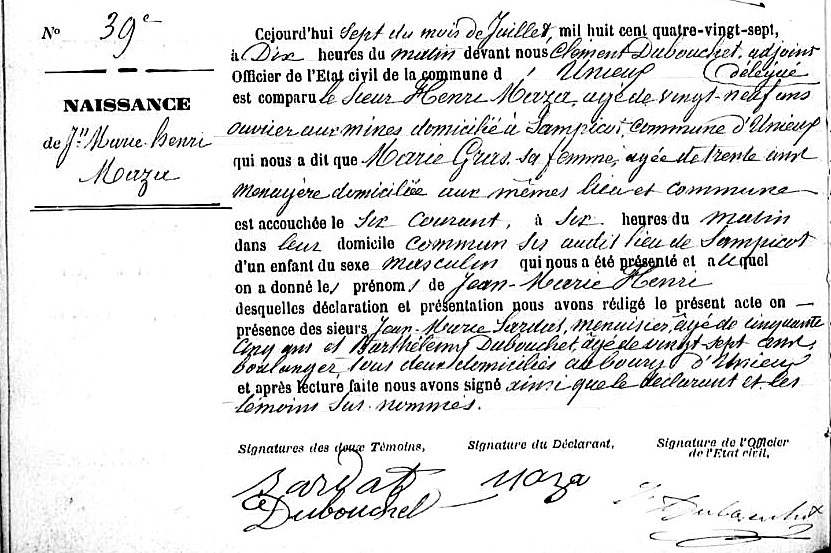 N° 39e
NAISSANCE
de Jn Marie Henri
Maza
Cejourd'hui sept du mois de Juillet, mil huit cent quatre-vingt-sept,
à Dix heures du matin devant nous Clément Dubouchet, adjoint
Officier de l'Etat civil de la commune d'Unieux délégué
est comparu le sieur Henri Maza, agé de vingt-neuf ans
ouvrier aux mines domicilié à Sampicot, commune d'Unieux
qui nous a dit que Marie Gras, sa femme, agée de trente ans
menagère domiciliée aux mêmes lieu et commune
est accouchée le six courant, à six heures du matin
dans leur domicile commun sis audit lieu de Sampicot
d'un enfant du sexe masculin qui nous a été présenté et auquel
on a donné les prénoms de Jean-Marie Henri
desquelles déclaration et présentation nous avons rédigé le présent acte en
présence des sieurs Jean-Marie Sardat, menuisier, âgé de cinquante
cinq ans et Barthélemy Dubouchet, âgé de vingt-sept ans
boulanger, tous deux domiciliés au bourg d'Unieux
et après lecture faite nous avons signé ainsi que le déclarant et les
témoins sus-nommés.
Signatures des deux Témoins, Signature du Déclarant, Signature de l'Officier
de l'Etat civil,
Sardat Maza
Dubouchet Dubouchet